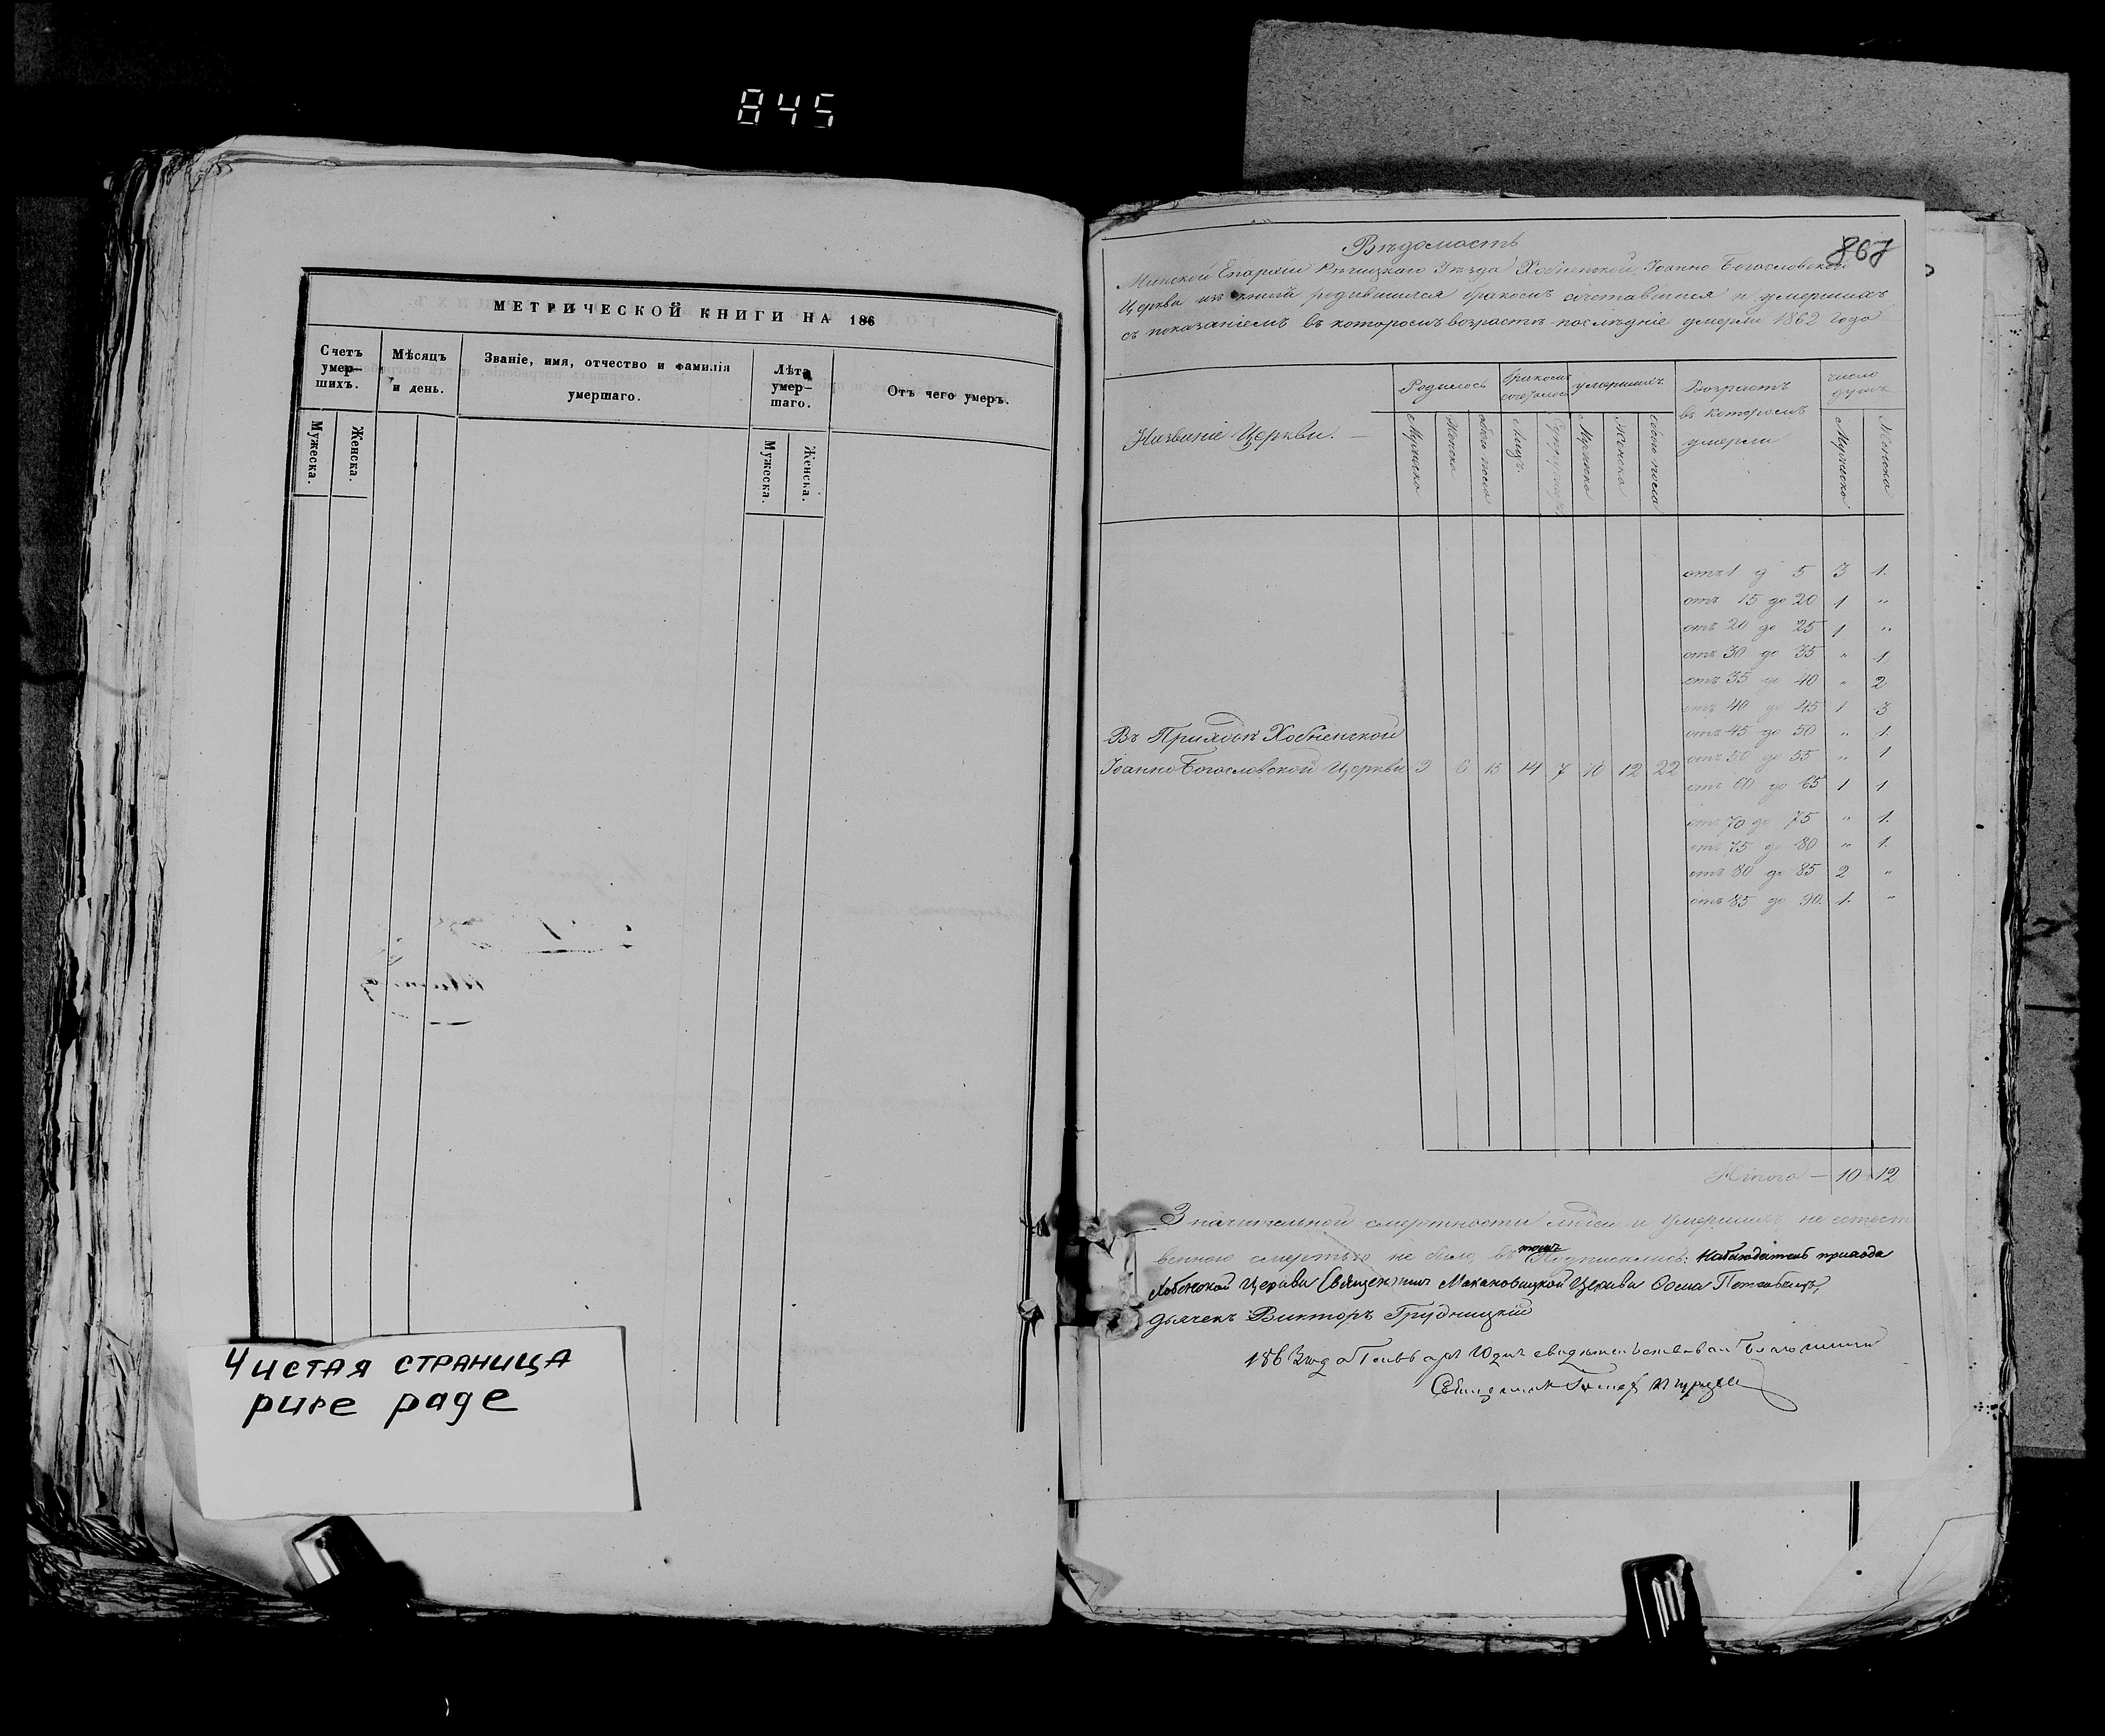 845
МЕТРИЧЕСКОЙ КНИГИ НА 186
Счетъ умер- шихъ.
Мѣсяцъ и день.
Званіе, имя, отчество и фамилія умершаго.
Лѣта умер- шаго.
Отъ чего умеръ.
Мужеска.
Женска.
Мужеска.
Женска.
Чистая страница
pure page
867
Вѣдомость
Минской Епархіи Рѣчицкаго Уѣзда Хобненской Іоанно Богословской
Церкви изъ книги родившихся бракомъ сочетавшихся и умершихъ
съ показаніемъ въ которомъ возрастѣ послѣдніе умерли 1862 года
Названіе Церкви.
Родилось
бракомъ
умершихъ
Возрастъ въ которомъ умерли
число душъ
Мужеска
Женска
обоего пола
Лицъ
Мужеска
Женска
обоего пола
Мужеска
Женска
отъ 1 д 5 3 1.
отъ 15 до 20 1 "
отъ 20 до 25 1 "
отъ 30 до 35 " 1
отъ 35 до 40 " 2
отъ 40 до 45 1 3
отъ 45 до 50 " 1.
отъ 50 до 55 " 1
отъ 60 до 65 1 1
отъ 70 до 75 " 1.
отъ 75 до 80 " 1.
отъ 80 до 85 2 "
отъ 85 до 90. 1. "
Въ Приходѣ Хобненской
Іоанно Богословской Церкви 9 6 15 14 7 10 12 22
Итого — 10 12
Значительной смертности людей и умершихъ не естест
венною смертью не было, въ томъ Подписались: Наблюдатель прихода
Хобненской Церкви Священникъ Макановицкой Церкви
дьячекъ Викторъ Грудницкій